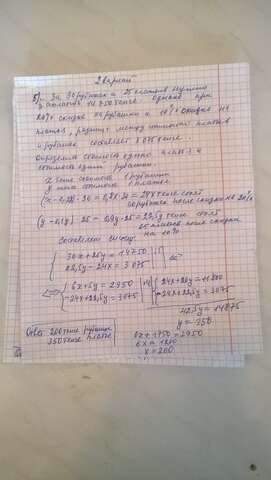 2 вариант
5) За 30 рубашек и 25 платков нужно
14 750 тенге. однако при
20% скидке на рубашки и 10% скидке на
платок, разница между платков
и рубашек составляет 3 075 тенге
Определим стоимость одного и
стоимость одной рубашки.
x тенге стоимость 1 рубашки
y тенге стоимость 1 платка
(x-0,2x)·30=0,8x·30=24x тенге стоят
30 рубашек после скидки на 20%
(y-0,1y)·25=0,9y·25=22,5y тенге стоят
25 платков после скидки
на 10%
Составляем систему.
30x+25y=14750 |:5
22,5y-24x=3075
6x+5y=2950 |·4
-24x+22,5y=3075
24x+20y=11800
-24x+22,5y=3075
42,5y=14875
y=350
6x+1750=2950
6x=1200
x=200
Ответ: 200 тенге рубашка
350 тенге платок